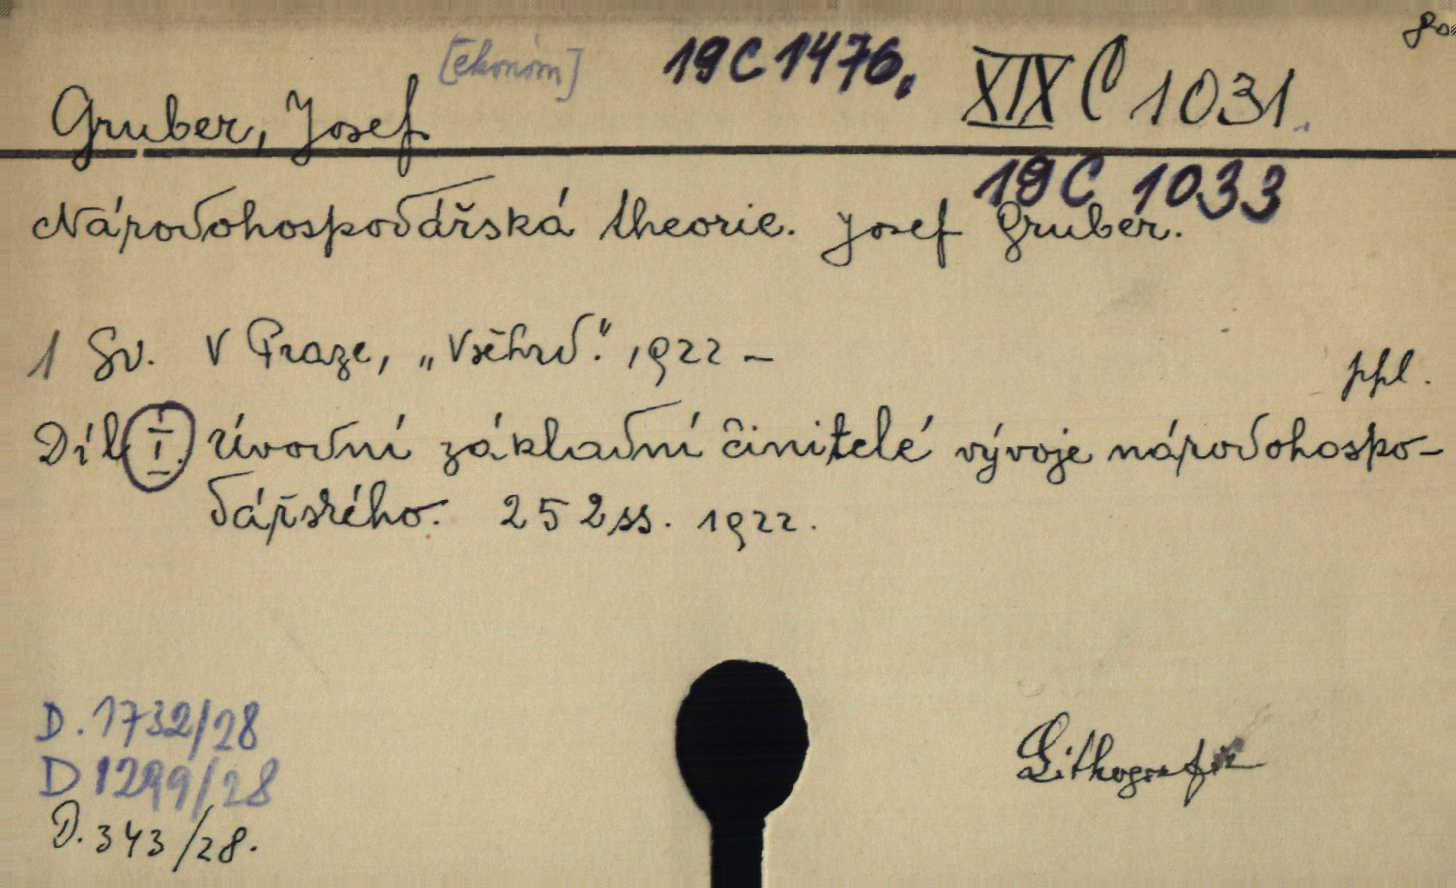 [ekonom] 19 C 1476. XIX C 1031.
Gruber, Josef
19 C 1033
Národohospodářská theorie. Josef Gruber.
1 Sv. V Praze, „Všehrd." 1922 –
ppl.
Díl I. Úvodní základní činitelé vývoje národohospo-
dářského. 252 ss. 1922.
D. 1732/28
D 1299/28
D. 343/28.